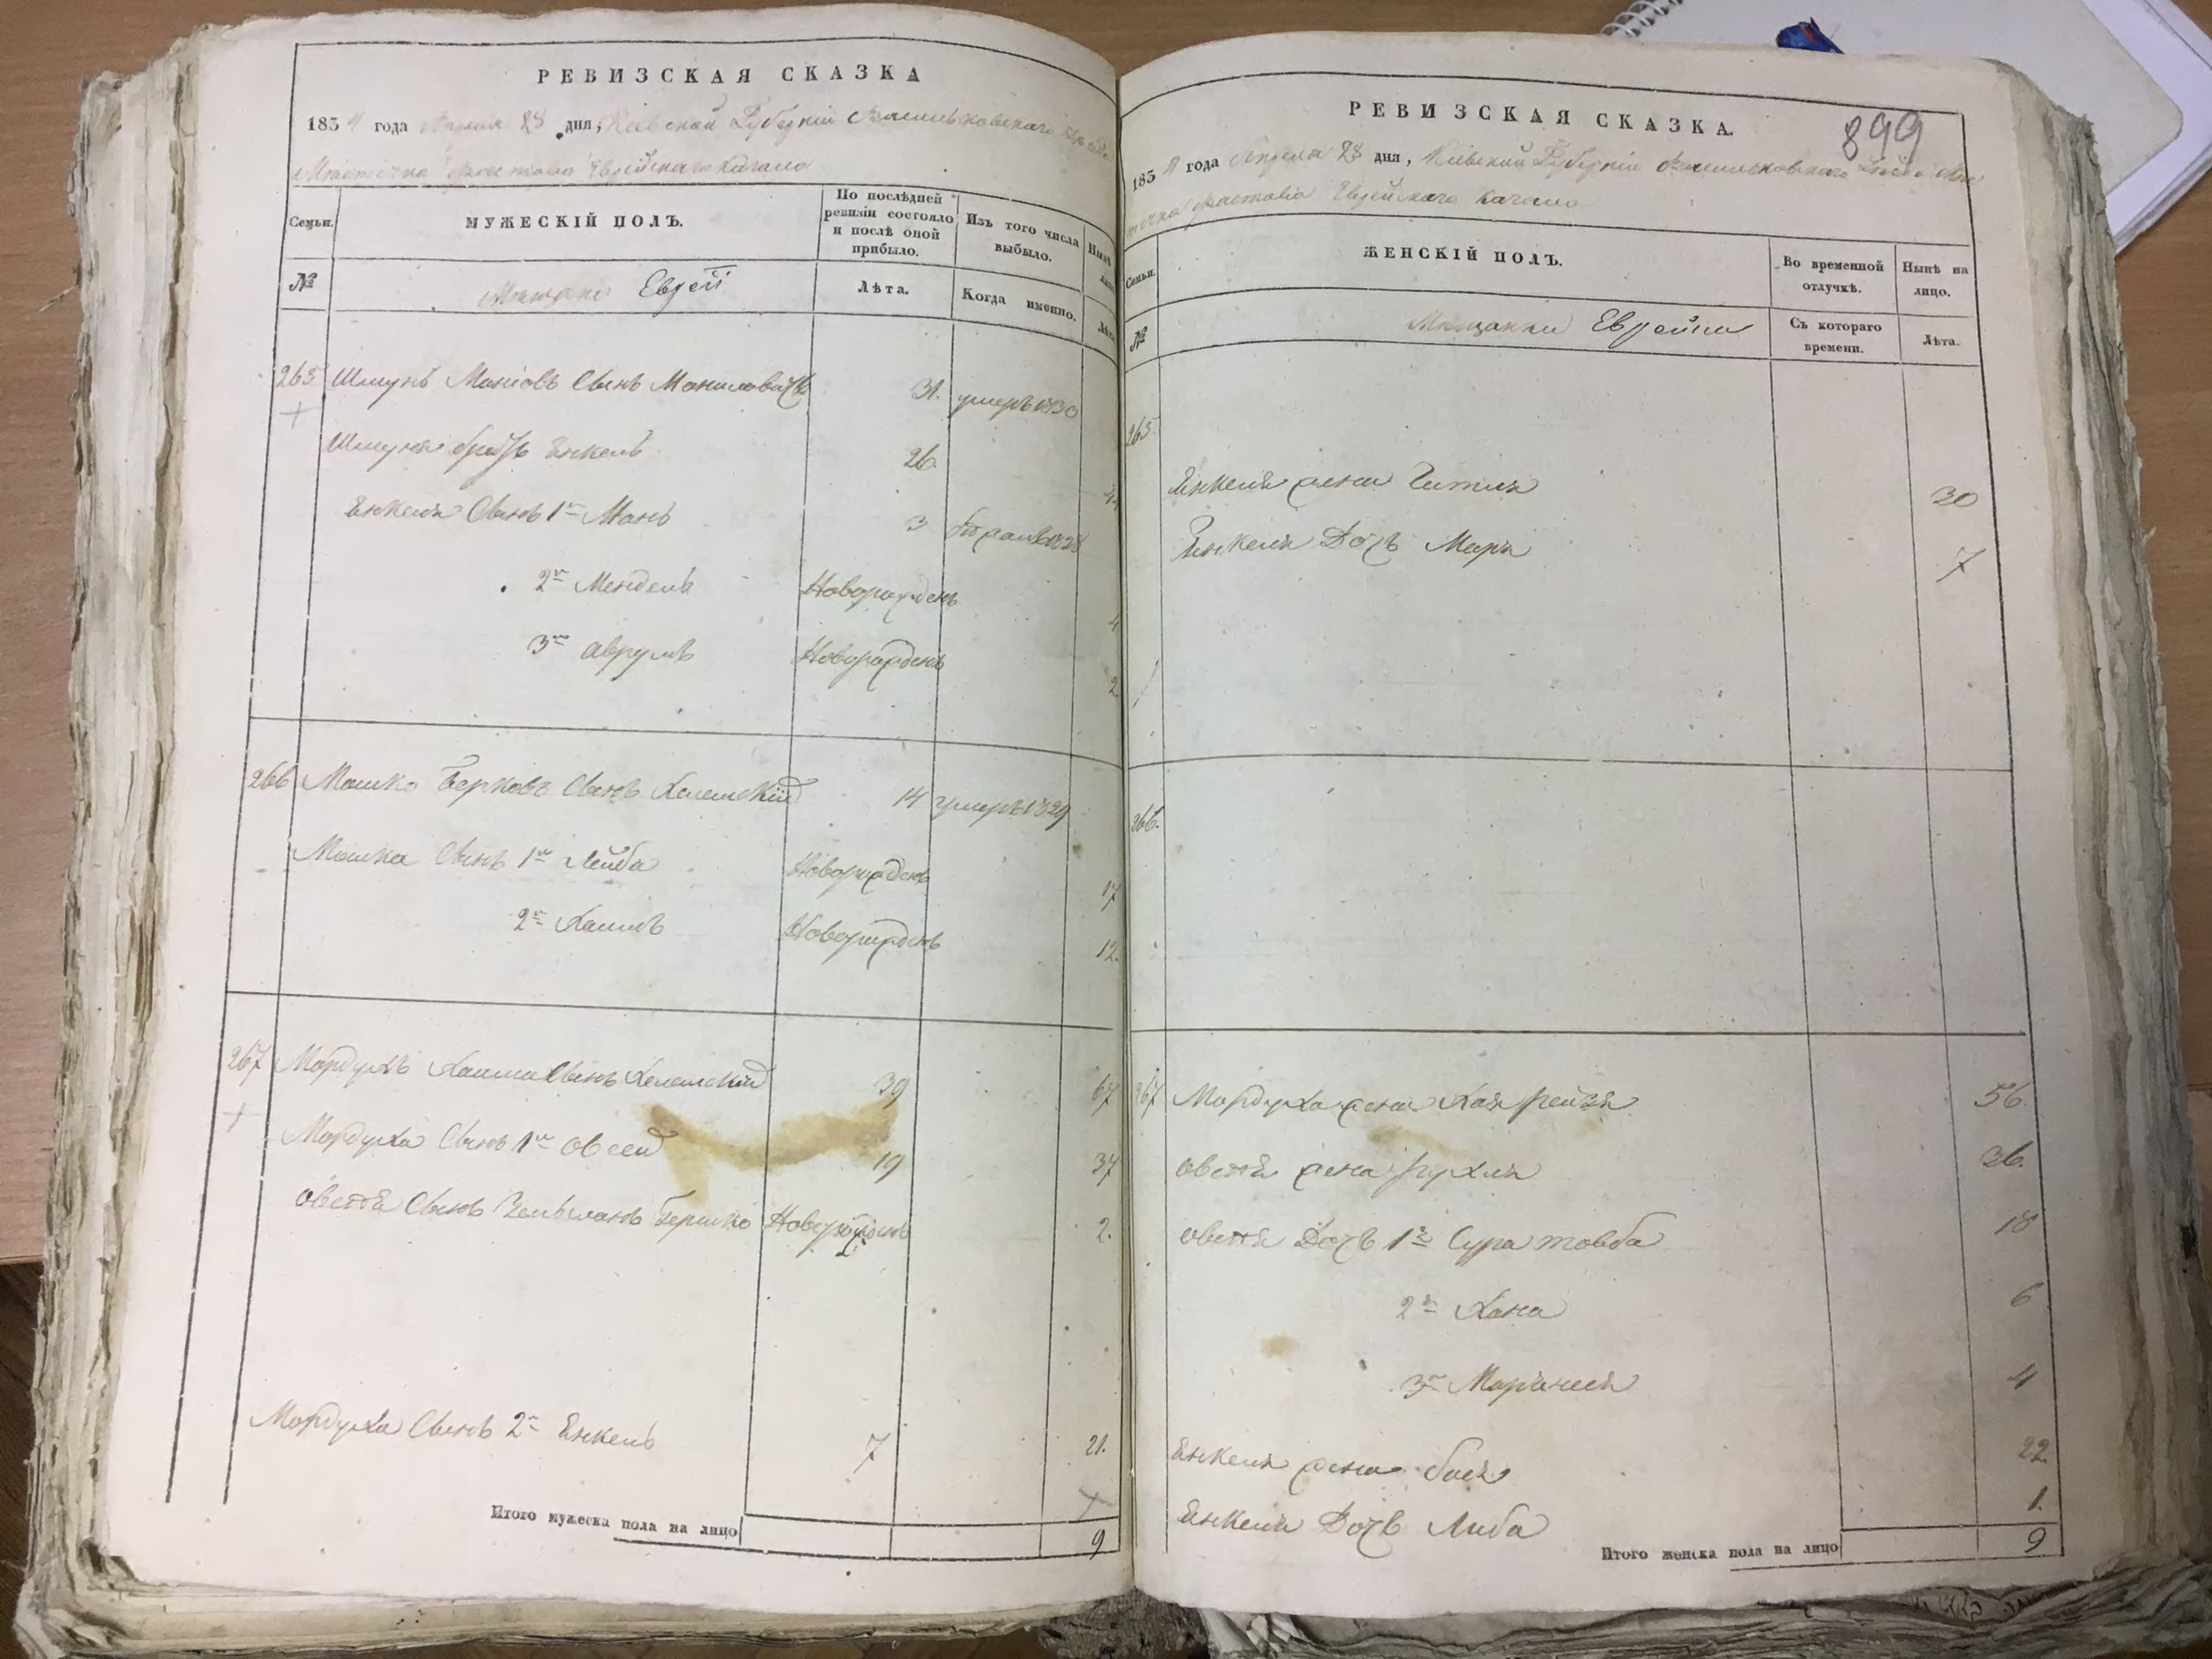 РЕВИЗСКАЯ СКАЗКА
1834 года Апреля 28 дня, Кіевской Губерніи Васильковскаго Уезда
Местечка Фастова Еврейскаго Кагала
Семьи.
МУЖЕСКІЙ ПОЛЪ.
По послѣдней ревизіи состояло и послѣ оной прибыло.
Изъ того числа выбыло.
Нынѣ
№
Мещане Евреи
Лѣта.
Когда именно.
265 Шмунь Маніовъ Сынъ 31. умеръ 1830
Шмуня братъ Енкель 26.
Енкеля Сынъ 1й Мань 3
2й Мендель Новорожденъ 4
3й Аврумъ Новорожденъ 2
266 Мошко Берковъ Сынъ 14 умеръ 1829
Мошка Сынъ 1й Лейба Новорожденъ 17
2й Хаимъ Новорожденъ 12.
267 Мордухъ Хаима Сынъ 39 67
Мордуха Сынъ 1й Овсей 19 37
Овсея Сынъ Зельманъ Гершко Новорожденъ 2.
Мордуха Сынъ 2й Енкель 7 21.
Итого мужеска пола на лицо 9
РЕВИЗСКАЯ СКАЗКА.
899
1834 года Апреля 28 дня, Кіевской Губерніи Васильковскаго Уезда Мес
течка Фастова Еврейскаго Кагала
Семьи.
ЖЕНСКІЙ ПОЛЪ.
Во временной отлучкѣ.
Нынѣ на лицо.
№
Мещанки Еврейки
Съ котораго времени.
Лѣта.
265.
Енкеля жена Гитля 30
Енкеля Дочь Маря 7
266.
267 Мордуха жена Хая Рейзя 56.
Овсея жена Рухля 36.
Овсея Дочь 1я Сура Товба 18
2я Хана 6
3я Марьяся 4
Енкеля жена Бася 22
Енкеля Дочь Либа 1.
Итого женска пола на лицо 9